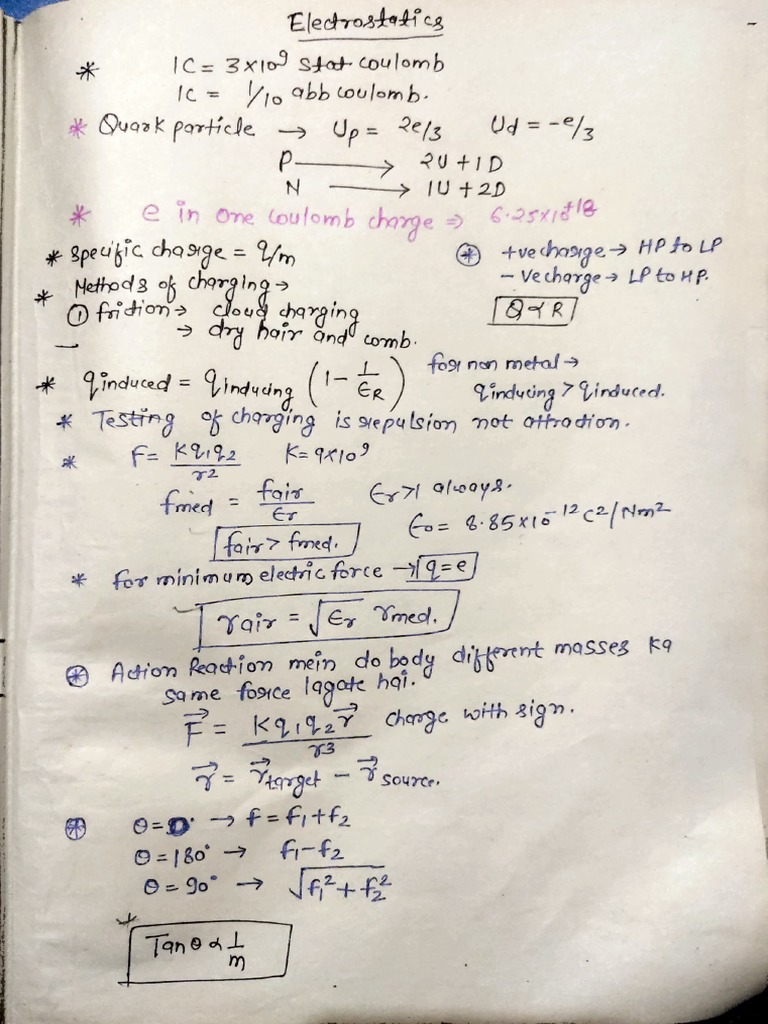 Electrostatics
* 1C = 3×10⁹ stat coulomb
1C = 1/10 abb coulomb.
* Quark particle → Up = 2e/3 Ud = -e/3
P → 2U + 1D
N → 1U + 2D
* e in one coulomb charge ⇒ 6.25×10⁺¹⁸
* specific charge = q/m
⊛ +ve charge → HP to LP
- Ve charge → LP to HP.
Q ∝ R
* Methods of charging →
① friction → cloud charging
→ dry hair and comb.
* qinduced = qinducing (1 - 1/ЄR) for non metal →
qinducing > qinduced.
* Testing of charging is repulsion not attraction.
* F = Kq₁q₂/r² K = 9×10⁹
fmed = fair/Єr Єr>1 always.
fair > fmed. Єo = 8.85×10⁻¹² C²/Nm²
* for minimum electric force → q = e
rair = √Єr rmed.
⊛ Action Reaction mein do body different masses ka
same force lagate hai.
F⃗ = Kq₁q₂r⃗/r³ charge with sign.
r⃗ = r⃗target - r⃗source.
⊛ θ = 0° → f = f₁+f₂
θ = 180° → f₁-f₂
θ = 90° → √f₁²+f₂²
* Tanθ ∝ 1/m